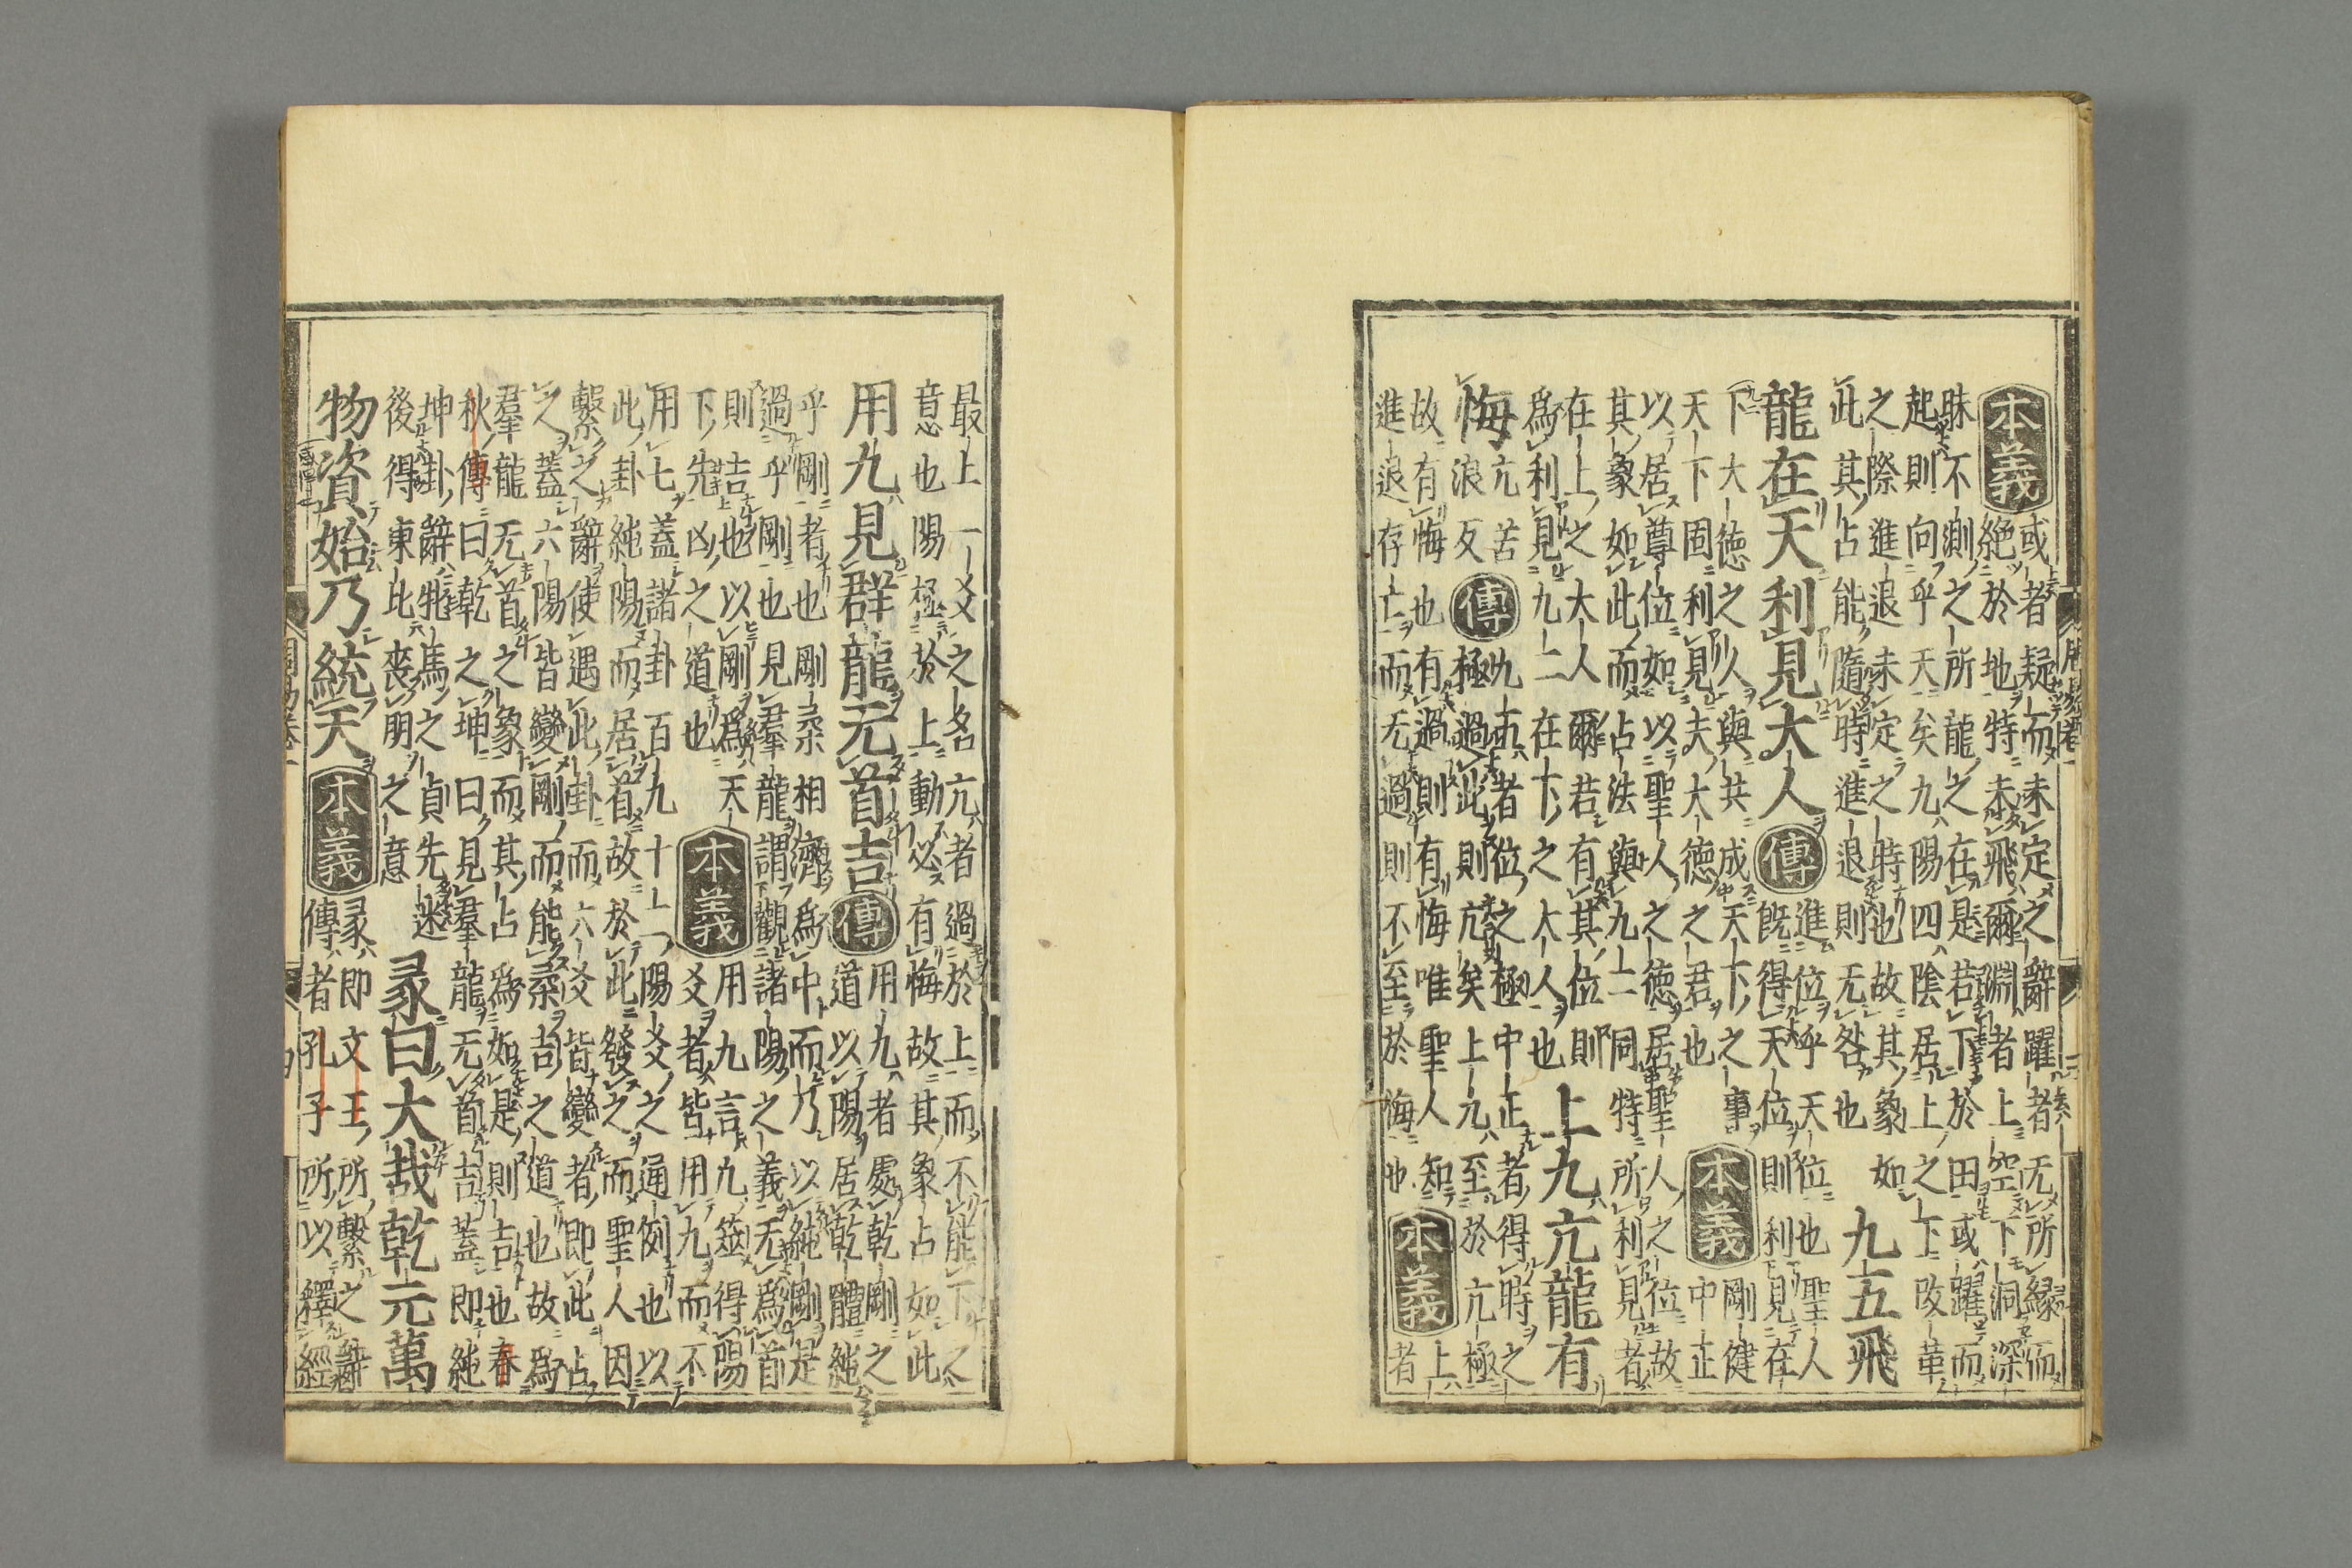 本義
或者疑而未定之辭躍者无所緣而
絶於地特未飛爾淵者上空下洞深
昧不測之所龍之在是若下於田或躍而
起則向乎天矣九陽四陰居上之下改革
之際進退未定之時也故其象如
此其占能隨時進退則无咎也
九五飛
龍在天利見大人
傳
進位乎天位也聖人
既得天位則利見在
下大德之人與共成天下之事
天下固利見夫大德之君也
本義
剛健
中正
以居尊位如以聖人之德居聖人之位故
其象如此而占法與九二同特所利見者
在上之大人爾若有其位則
爲利見九二在下之大人也
上九亢龍有
悔
亢苦
浪反
傳
九五者位之極中正者得時之
極過此則亢矣上九至於亢極
故有悔也有過則有悔唯聖人知
進退存亡而无過則不至於悔也
本義
上
者
最上一爻之名亢者過於上而不能下之
意也陽極於上動必有悔故其象占如此
用九見群龍无首吉
傳
用九者處乾剛之
道以陽居乾體純
乎剛者也剛柔相濟爲中而乃以純剛是
過乎剛也見羣龍謂觀諸陽之義无爲首
則吉也以剛爲天
下先凶之道也
本義
用九言凡筮得陽
爻者皆用九而不
用七蓋諸卦百九十二陽爻之通例也以
此卦純陽而居首故於此發之而聖人因
繫之辭使遇此卦而六爻皆變者即此占
之蓋六陽皆變剛而能柔吉之道也故爲
羣龍无首之象而其占爲如是則吉也春
秋傳曰乾之坤曰見羣龍无首吉蓋即純
坤卦辭牝馬之貞先迷
後得東北喪朋之意
彖曰大哉乾元萬
物資始乃統天
本義
彖即文王所繫之辭
傳者孔子所以釋經